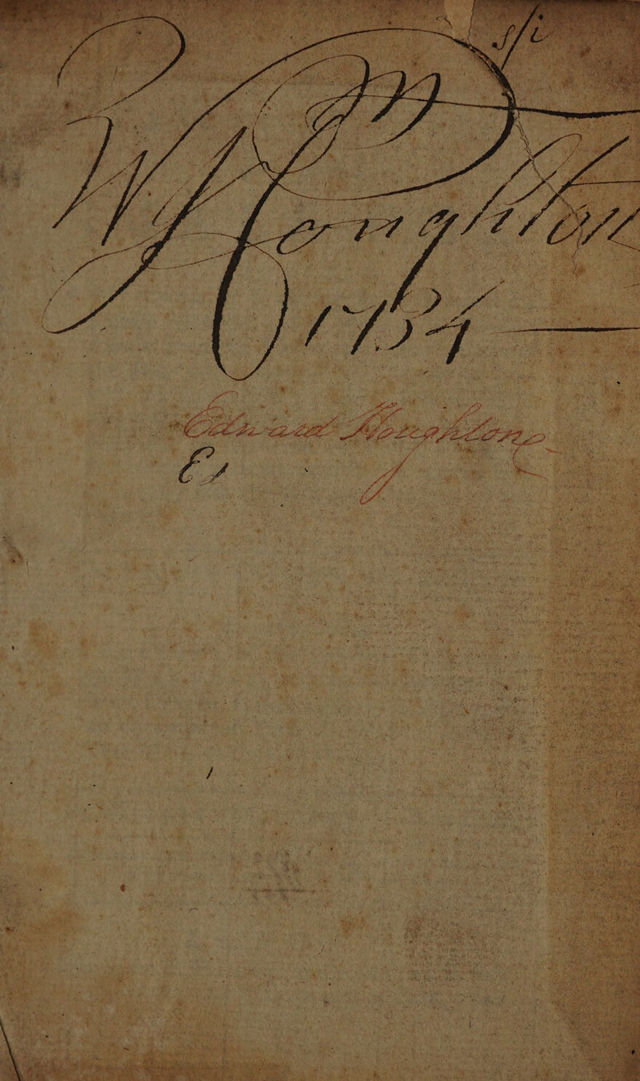 s/i
Wm Houghton
1734
Edward Houghton
Ed